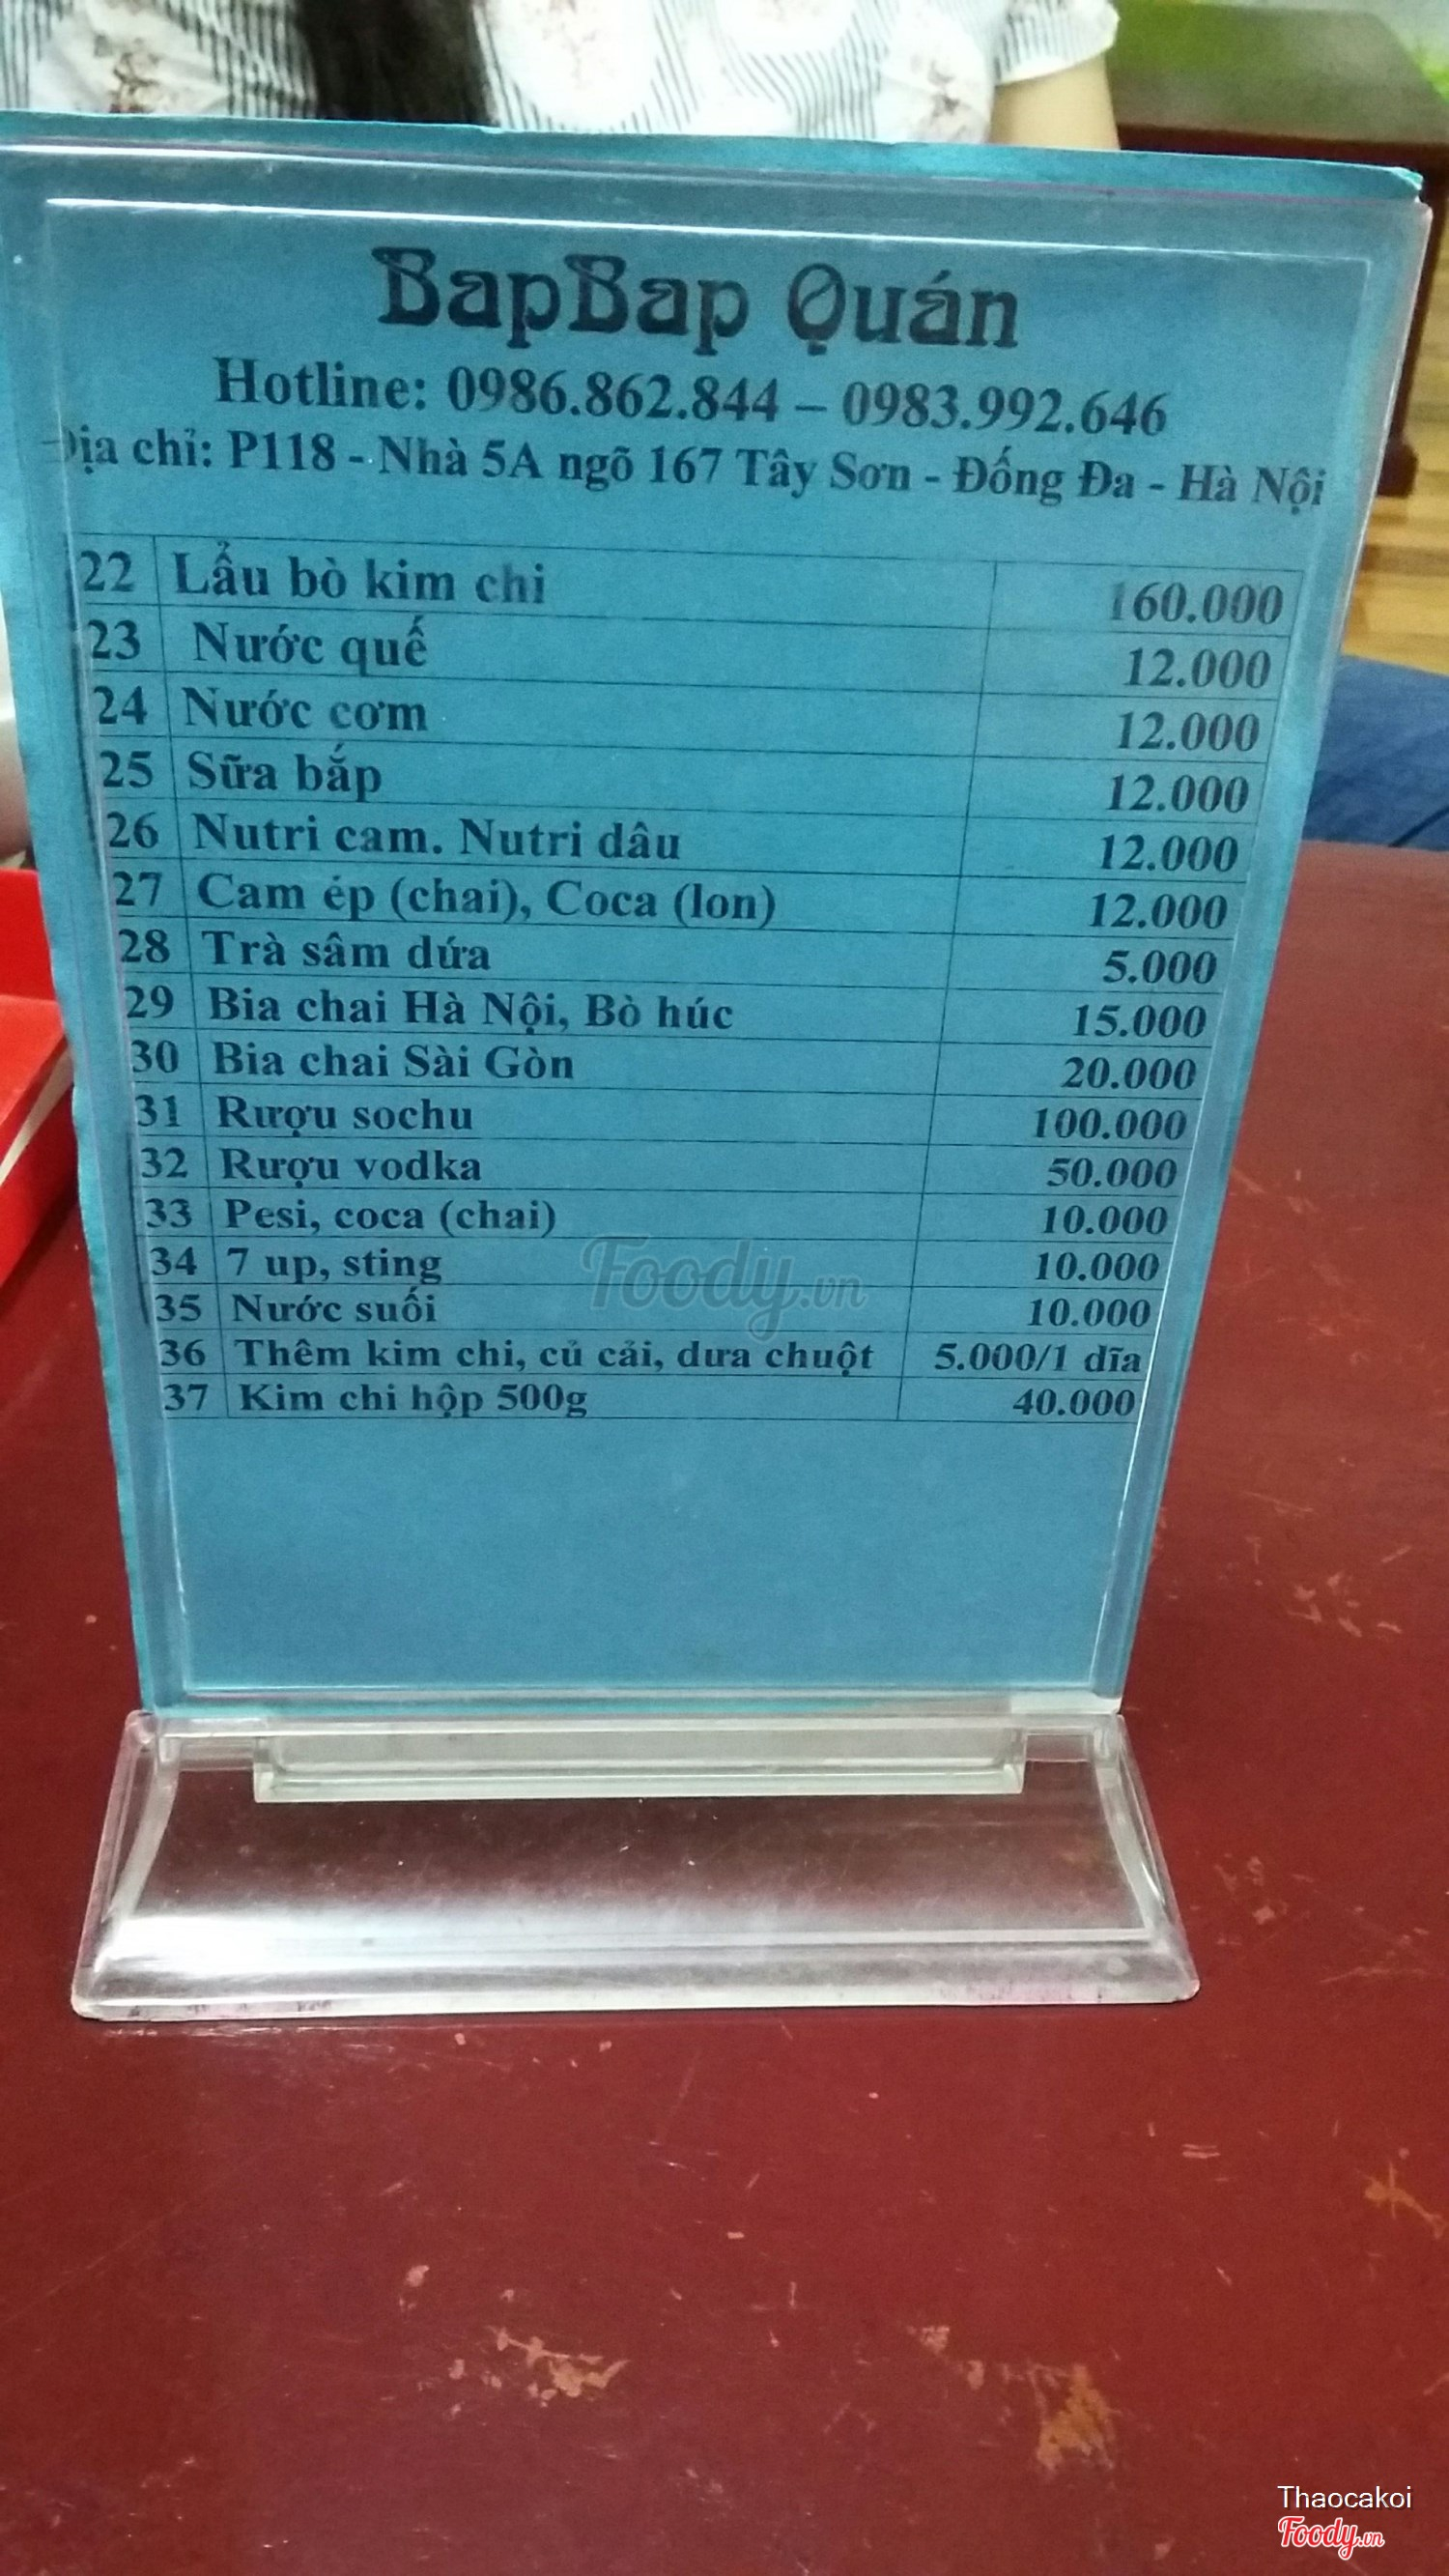 BapBap Quán
Hotline: 0986.862.844 – 0983.992.646
Địa chỉ: P118 - Nhà 5A ngõ 167 Tây Sơn - Đống Đa - Hà Nội
22 Lẩu bò kim chi 160.000
23 Nước quế 12.000
24 Nước cơm 12.000
25 Sữa bắp 12.000
26 Nutri cam. Nutri dâu 12.000
27 Cam ép (chai), Coca (lon) 12.000
28 Trà sâm dứa 5.000
29 Bia chai Hà Nội, Bò húc 15.000
30 Bia chai Sài Gòn 20.000
31 Rượu sochu 100.000
32 Rượu vodka 50.000
33 Pesi, coca (chai) 10.000
34 7 up, sting 10.000
35 Nước suối 10.000
36 Thêm kim chi, củ cải, dưa chuột 5.000/1 dĩa
37 Kim chi hộp 500g 40.000
Foody.vn
Thaocakoi
Foody.vn